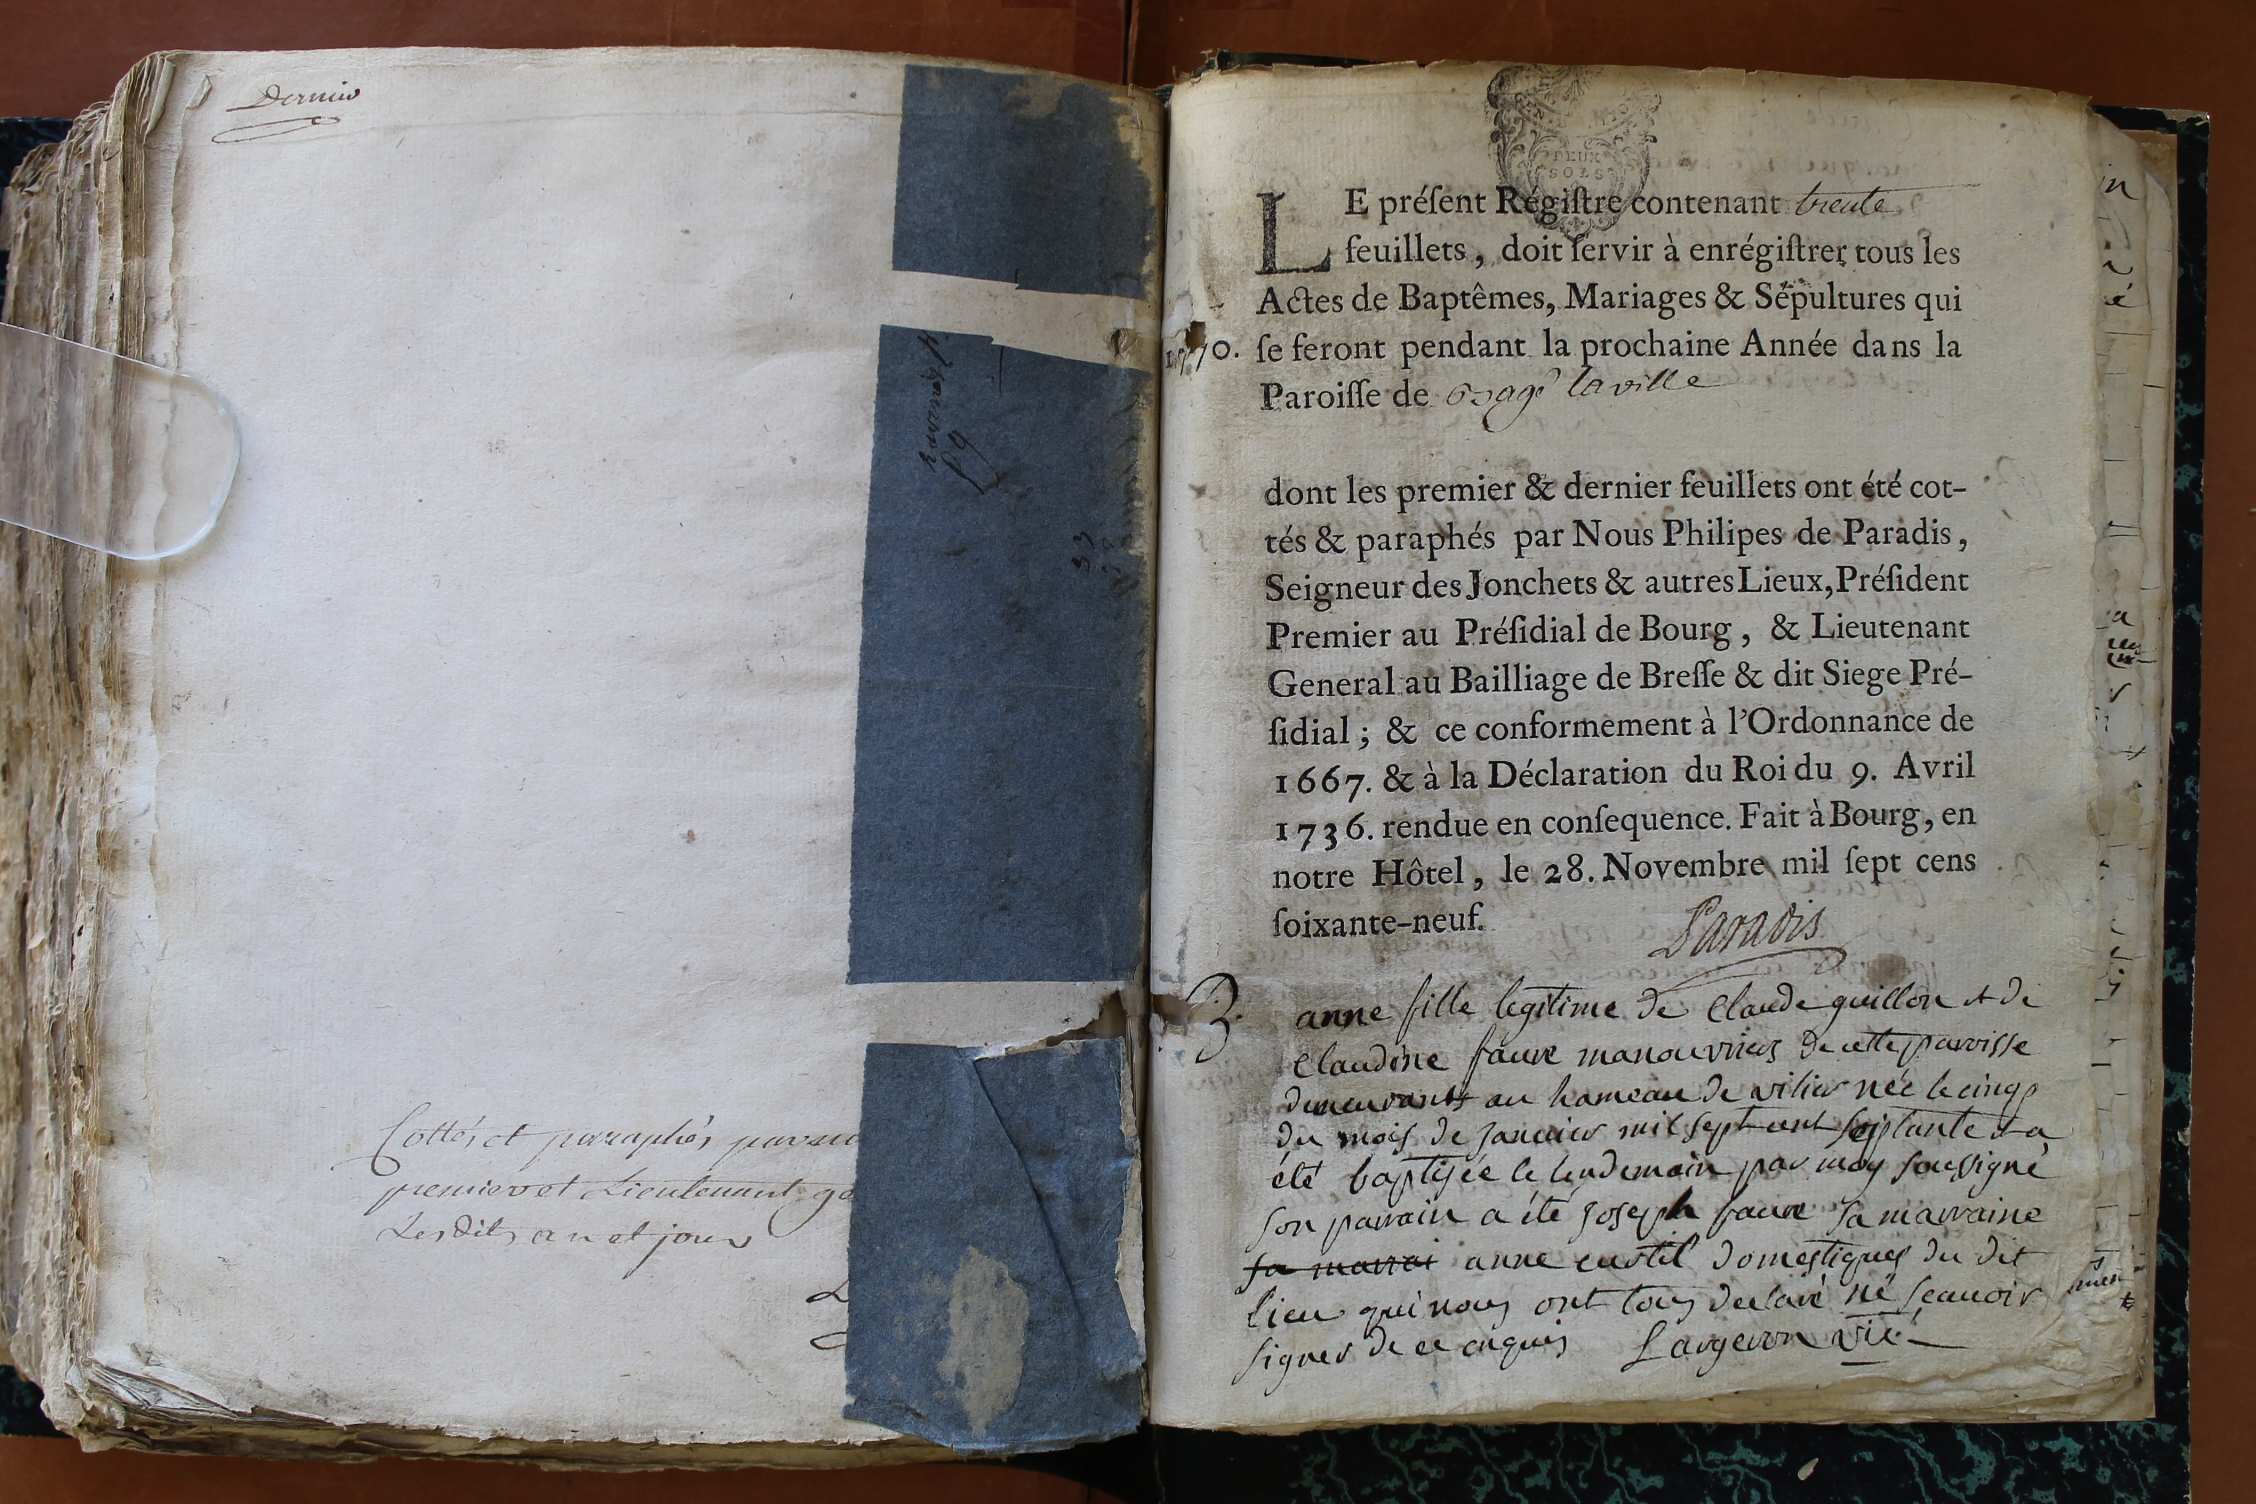 Dernier
Cottés et paraphés par
premier et Lieutenant
Lesdits an et jour
33
DEUX
SOLS
LE préſent Régiſtre contenant trente
feuillets, doit ſervir à enrégiſtrer tous les
Actes de Baptêmes, Mariages & Sépultures qui
1770. ſe feront pendant la prochaine Année dans la
Paroiſſe de laville
dont les premier & dernier feuillets ont été cot-
tés & paraphés par Nous Philipes de Paradis,
Seigneur des Jonchets & autres Lieux, Préſident
Premier au Préſidial de Bourg, & Lieutenant
General au Bailliage de Breſſe & dit Siege Pré-
ſidial ; & ce conformement à l'Ordonnance de
1667. & à la Déclaration du Roi du 9. Avril
1736. rendue en conſequence. Fait à Bourg, en
notre Hôtel, le 28. Novembre mil ſept cens
ſoixante-neuf.
Paradis
B. anne fille legitime de Claude guillon et de
Claudine faure manouvriers de cette parroisse
demeurants au hameau de vilier née le cinq
du mois de janvier mil sept cent septante et a
été baptisée le lendemain par moy soussigné
son parrain a été joseph faure sa marraine
sa marrai anne domestiques du dit
lieu qui nous ont tous declaré né scauoir
signer de ce enquis Largeron vic